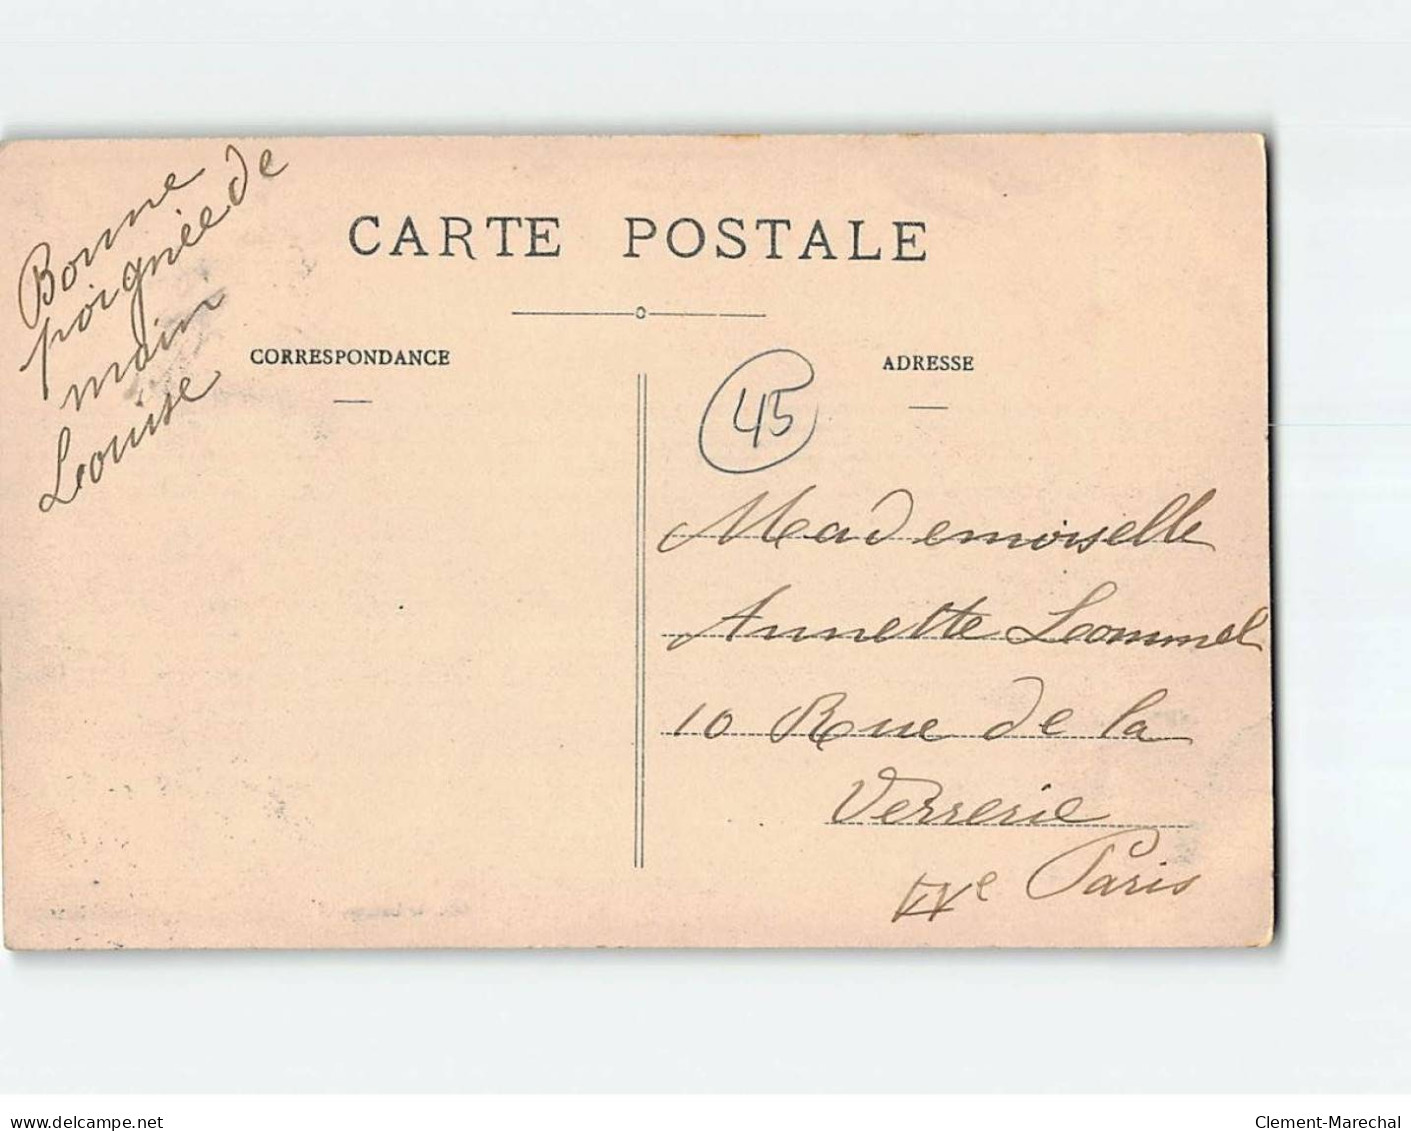 Bonne
poignée de
main
Louise
CARTE POSTALE
CORRESPONDANCE
ADRESSE
45
Mademoiselle
Annette Lommel
10 Rue de la
Verrerie
IVe Paris
www.delcampe.net
Clement-Marechal